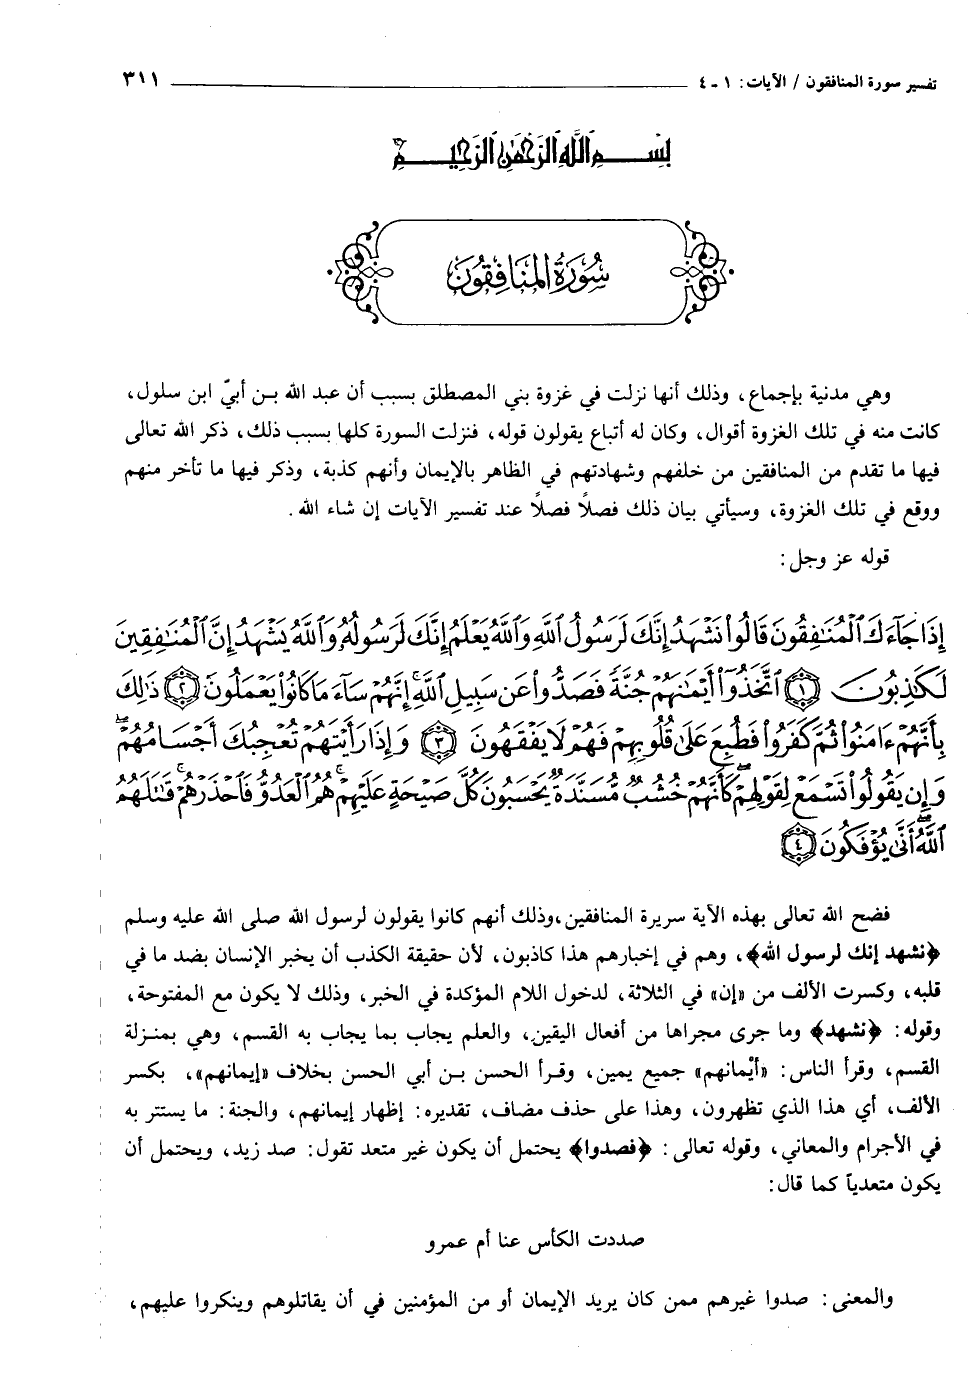 تفسير سورة المنافقون / الآيات: ١ - ٤ ٣١١
بِسْمِ اللَّهِ الرَّحْمَٰنِ الرَّحِيمِ
سُورَةُ المُنَافِقُونَ
وهي مدنية بإجماع، وذلك أنها نزلت في غزوة بني المصطلق بسبب أن عبد الله بـن أبيّ ابن سلول،
كانت منه في تلك الغزوة أقوال، وكان له أتباع يقولون قوله، فنزلت السورة كلها بسبب ذلك، ذكر الله تعالى
فيها ما تقدم من المنافقين من خلفهم وشهادتهم في الظاهر بالإيمان وأنهم كذبة، وذكر فيها ما تأخر منهم
ووقع في تلك الغزوة، وسيأتي بيان ذلك فصلًا فصلًا عند تفسير الآيات إن شاء الله.
قوله عز وجل:
إِذَا جَآءَكَ ٱلْمُنَٰفِقُونَ قَالُوا۟ نَشْهَدُ إِنَّكَ لَرَسُولُ ٱللَّهِ وَٱللَّهُ يَعْلَمُ إِنَّكَ لَرَسُولُهُۥ وَٱللَّهُ يَشْهَدُ إِنَّ ٱلْمُنَٰفِقِينَ
لَكَٰذِبُونَ ﴿١﴾ ٱتَّخَذُوٓا۟ أَيْمَٰنَهُمْ جُنَّةً فَصَدُّوا۟ عَن سَبِيلِ ٱللَّهِ ۚ إِنَّهُمْ سَآءَ مَا كَانُوا۟ يَعْمَلُونَ ﴿٢﴾ ذَٰلِكَ
بِأَنَّهُمْ ءَامَنُوا۟ ثُمَّ كَفَرُوا۟ فَطُبِعَ عَلَىٰ قُلُوبِهِمْ فَهُمْ لَا يَفْقَهُونَ ﴿٣﴾ وَإِذَا رَأَيْتَهُمْ تُعْجِبُكَ أَجْسَامُهُمْ ۖ
وَإِن يَقُولُوا۟ تَسْمَعْ لِقَوْلِهِمْ ۖ كَأَنَّهُمْ خُشُبٌ مُّسَنَّدَةٌ ۖ يَحْسَبُونَ كُلَّ صَيْحَةٍ عَلَيْهِمْ ۚ هُمُ ٱلْعَدُوُّ فَٱحْذَرْهُمْ ۚ قَٰتَلَهُمُ
ٱللَّهُ ۖ أَنَّىٰ يُؤْفَكُونَ ﴿٤﴾
فضح الله تعالى بهذه الآية سريرة المنافقين،وذلك أنهم كانوا يقولون لرسول الله صلى الله عليه وسلم
﴿نشهد إنك لرسول الله﴾، وهم في إخبارهم هذا كاذبون، لأن حقيقة الكذب أن يخبر الإنسان بضد ما في
قلبه، وكسرت الألف من «إن» في الثلاثة، لدخول اللام المؤكدة في الخبر، وذلك لا يكون مع المفتوحة،
وقوله: ﴿نشهد﴾ وما جرى مجراها من أفعال اليقين، والعلم يجاب بما يجاب به القسم، وهي بمنـزلة
القسم، وقرأ الناس: «أيْمانهم» جميع يمين، وقـرأ الحسن بـن أبي الحسن بخلاف «إيمانهم»، بكسر
الألف، أي هذا الذي تظهرون، وهذا على حذف مضاف، تقديره: إظهار إيمانهم، والجنة: ما يستتر به
في الأجرام والمعاني، وقوله تعالى: ﴿فصدوا﴾ يحتمل أن يكون غير متعد تقول: صد زيد، ويحتمل أن
يكون متعدياً كما قال:
صددت الكأس عنا أم عمرو
والمعنى: صدوا غيرهم ممن كان يريد الإيمان أو من المؤمنين في أن يقاتلوهم وينكروا عليهم،